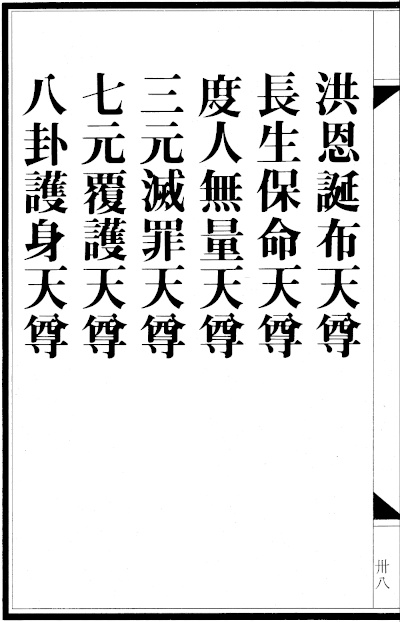 洪恩誕布天尊
長生保命天尊
度人無量天尊
三元滅罪天尊
七元覆護天尊
八卦護身天尊
卅八